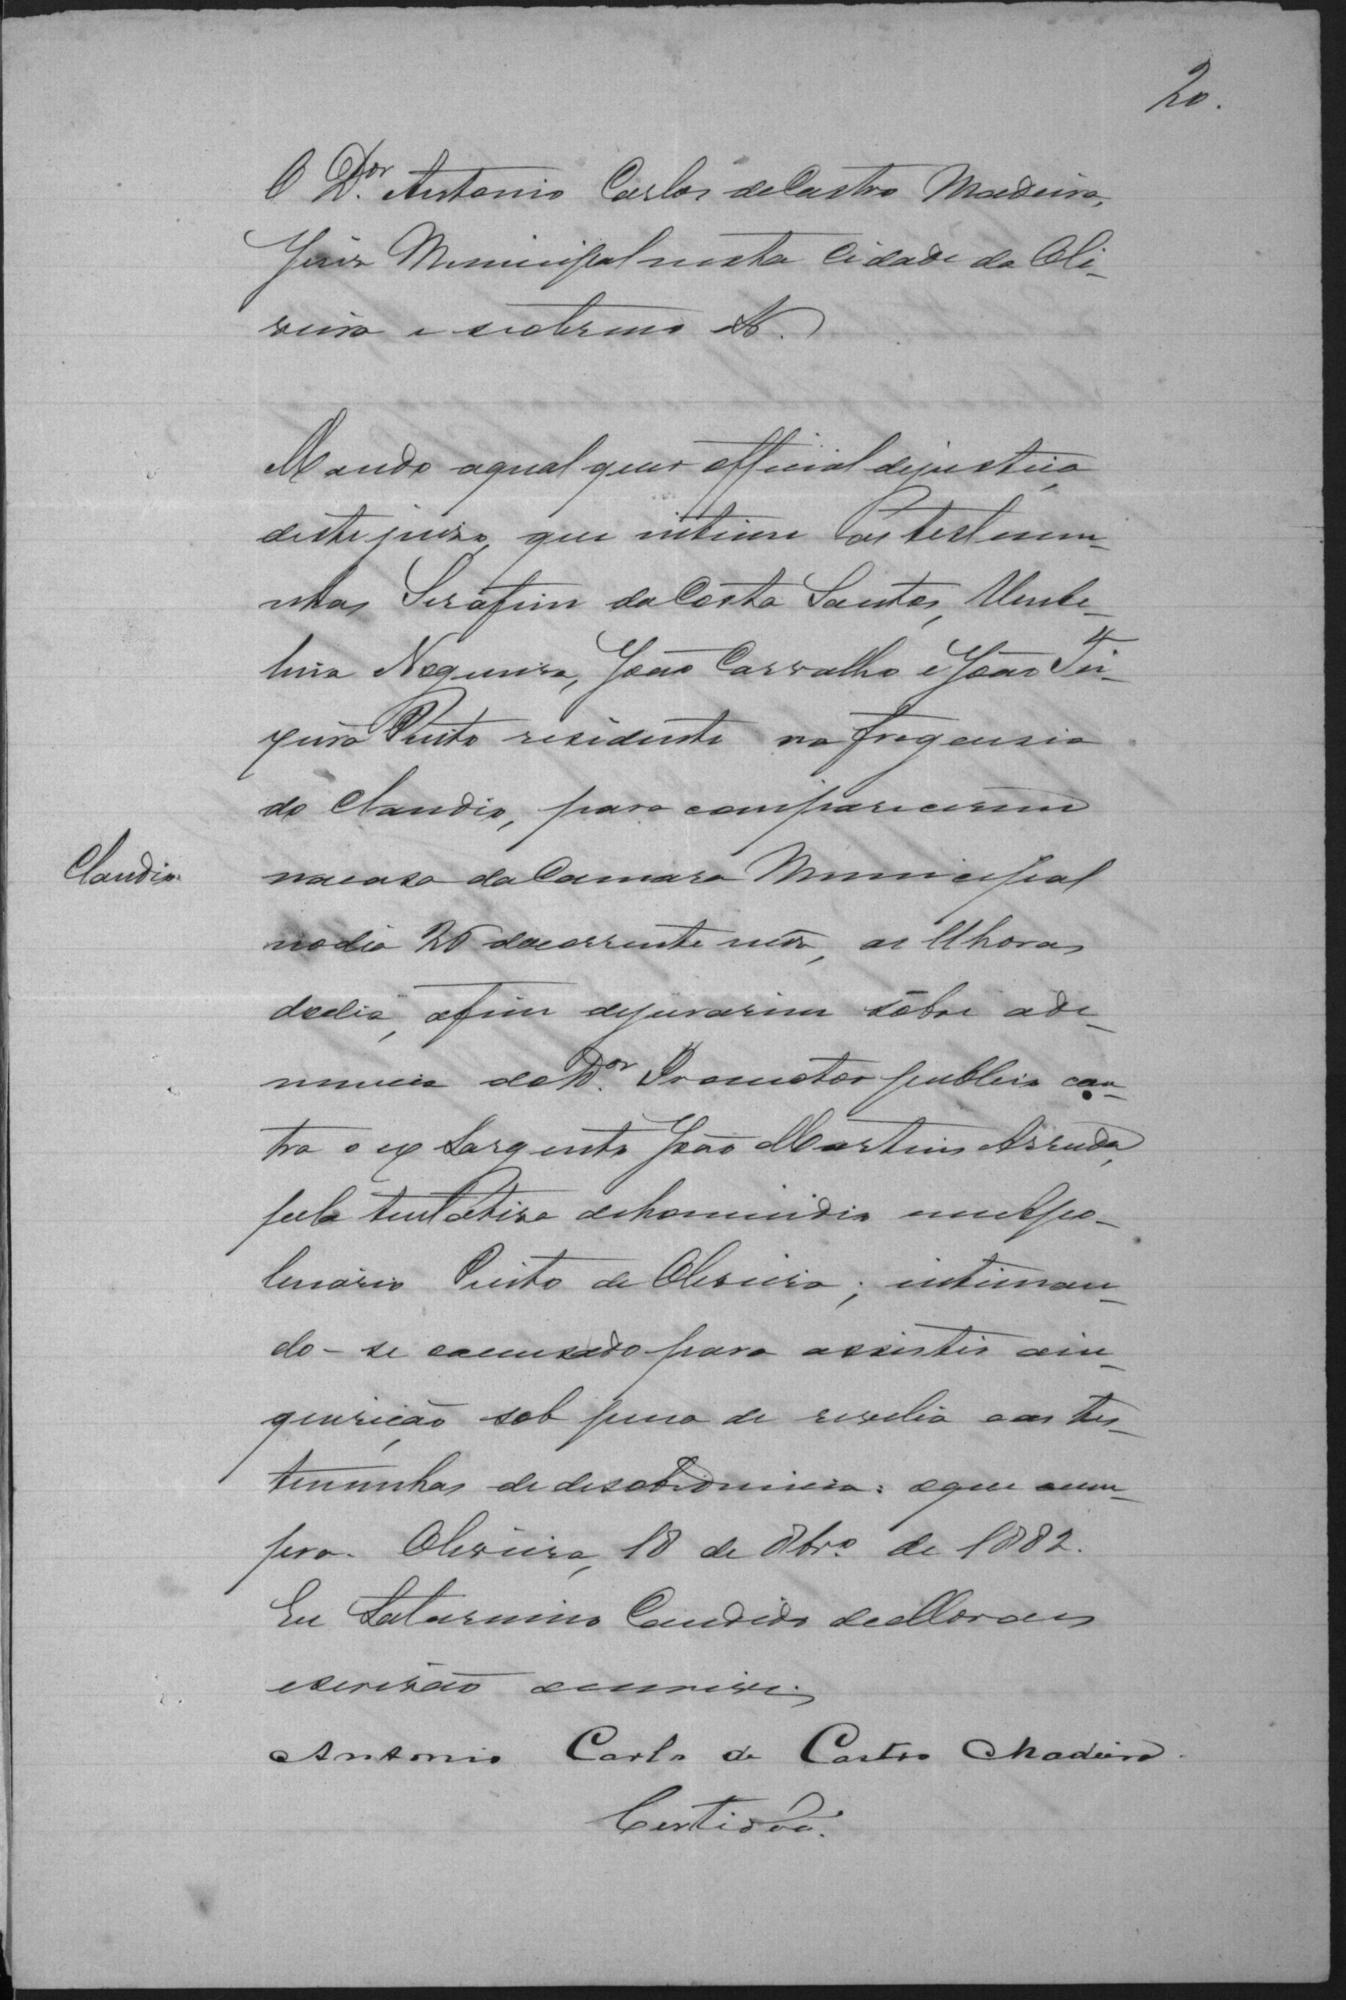 20.
O Dor. Antonio Carlos de Castro Madeira,
Juiz Municipal nesta Cidade da Oli-
veira e seo termo &.
Mando aqualquer official dejustiça
deste juizo, que intime as testemu-
nhas Serafim da Costa Santos, Umbe-
lina Nogueira, João Carvalho e João
Pinto residente na freguesia
do Claudio, para comparecerem
Claudio
nacasa da Camara Municipal
nodia 26 docorrente mez, as 11 horas
dodia, afim dejurarem sobre ade-
nuncia do Dor. Promotor publico con-
tra o ex Sargento João Martins Arruda,
pela tentativa dehomicidio em Apo-
linario Pinto de Oliveira; intiman-
do-se oaccusado para assistir ain-
quirição sob pena de revelia e as tes-
temunhas de desobediencia: oque cum-
pra. Oliveira, 18 de 8bro. de 1882.
Eu Saturnino Candido de Moraes
escrivão oescrevi.
Antonio Carlos de Castro Madeira.
Certidão.